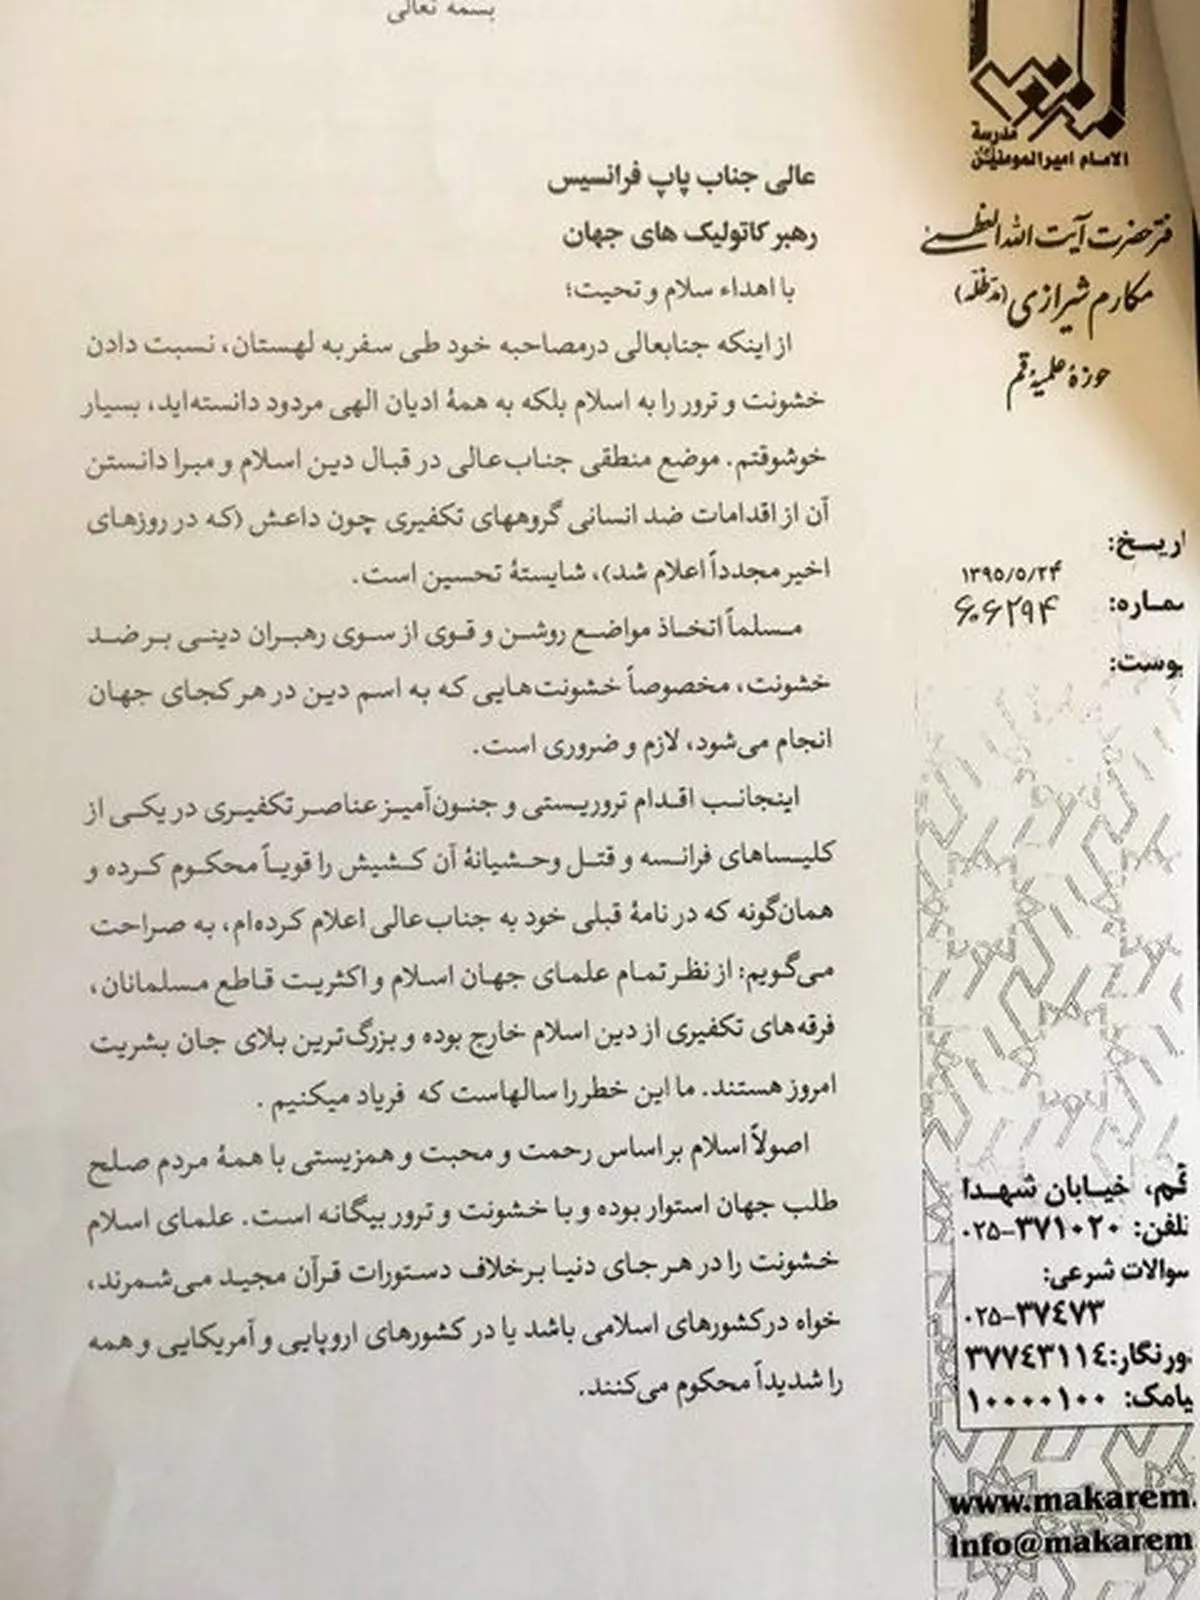 بسمه تعالی
مدرسة
الامام امیرالمومنین
فتر حضرت آیت الله العظمی
مکارم شیرازی (مدظله)
حوزهٔ علمیهٔ قم
اریخ:
۱۳۹۵/۵/۲۴
ماره:
۶۰۶۲۹۴
وست:
عالی جناب پاپ فرانسیس
رهبر کاتولیک های جهان
با اهداء سلام و تحیت؛
از اینکه جنابعالی درمصاحبه خود طی سفر به لهستان، نسبت دادن
خشونت و ترور را به اسلام بلکه به همهٔ ادیان الهی مردود دانسته‌اید، بسیار
خوشوقتم. موضع منطقی جناب‌عالی در قبال دین اسلام و مبرا دانستن
آن از اقدامات ضد انسانی گروههای تکفیری چون داعش (که در روزهای
اخیر مجدداً اعلام شد)، شایستهٔ تحسین است.
مسلماً اتخاذ مواضع روشن و قوی از سوی رهبران دینی بر ضد
خشونت، مخصوصاً خشونت‌هایی که به اسم دین در هر کجای جهان
انجام می‌شود، لازم و ضروری است.
اینجانب اقدام تروریستی و جنون‌آمیز عناصر تکفیری در یکی از
کلیساهای فرانسه و قتل وحشیانهٔ آن کشیش را قویاً محکوم کرده و
همان‌گونه که در نامهٔ قبلی خود به جناب‌عالی اعلام کرده‌ام، به صراحت
می‌گویم: از نظر تمام علمای جهان اسلام و اکثریت قاطع مسلمانان،
فرقه‌های تکفیری از دین اسلام خارج بوده و بزرگ‌ترین بلای جان بشریت
امروز هستند. ما این خطر را سالهاست که فریاد میکنیم .
اصولاً اسلام بر اساس رحمت و محبت و همزیستی با همهٔ مردم صلح
طلب جهان استوار بوده و با خشونت و ترور بیگانه است. علمای اسلام
خشونت را در هر جای دنیا بر خلاف دستورات قرآن مجید می‌شمرند،
خواه در کشورهای اسلامی باشد یا در کشورهای اروپایی و آمریکایی و همه
را شدیداً محکوم می‌کنند.
قم، خیابان شهدا
تلفن: ۳۷۱۰۲۰-۰۲۵
سوالات شرعی:
۰۲۵-۳۷۴۷۳
ورنگار: ۳۷۷۴۳۱۱۴
یامک: ۱۰۰۰۰۱۰۰
www.makarem.
info@makarem